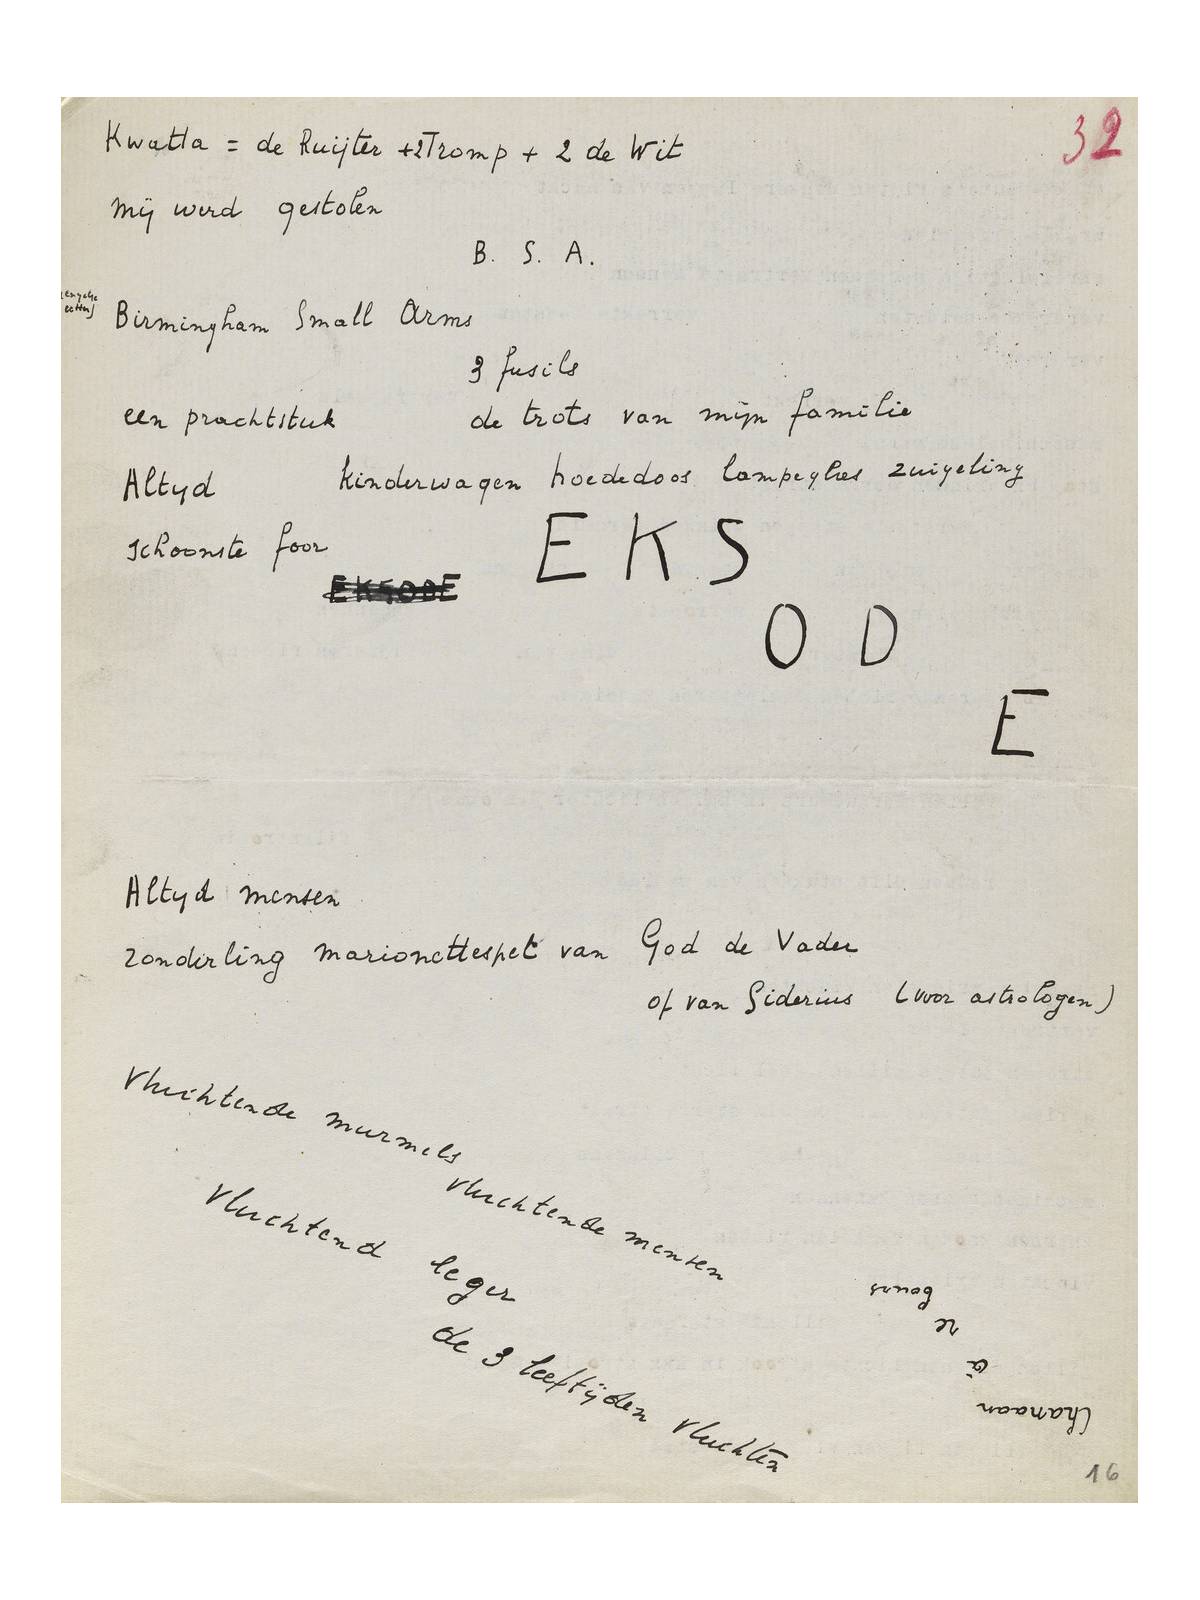 32
Kwatta = de Ruijter + 2 Tromp + 2 de Wit
mij werd gestolen
B. S. A.
Birmingham Small Arms
3 fusils
een prachtstuk de trots van mijn familie
Altyd kinderwagen hoededoos lampeglas zuigeling
schoonste foor
EKSODE
E K S
O D
E
Altyd mensen
zonderling marionettespel van God de Vader
of van Siderius (voor astrologen)
vluchtende murmels
vluchtende mensen
vluchtend leger
de 3 leeftijden vluchten
Chanaan
à
16